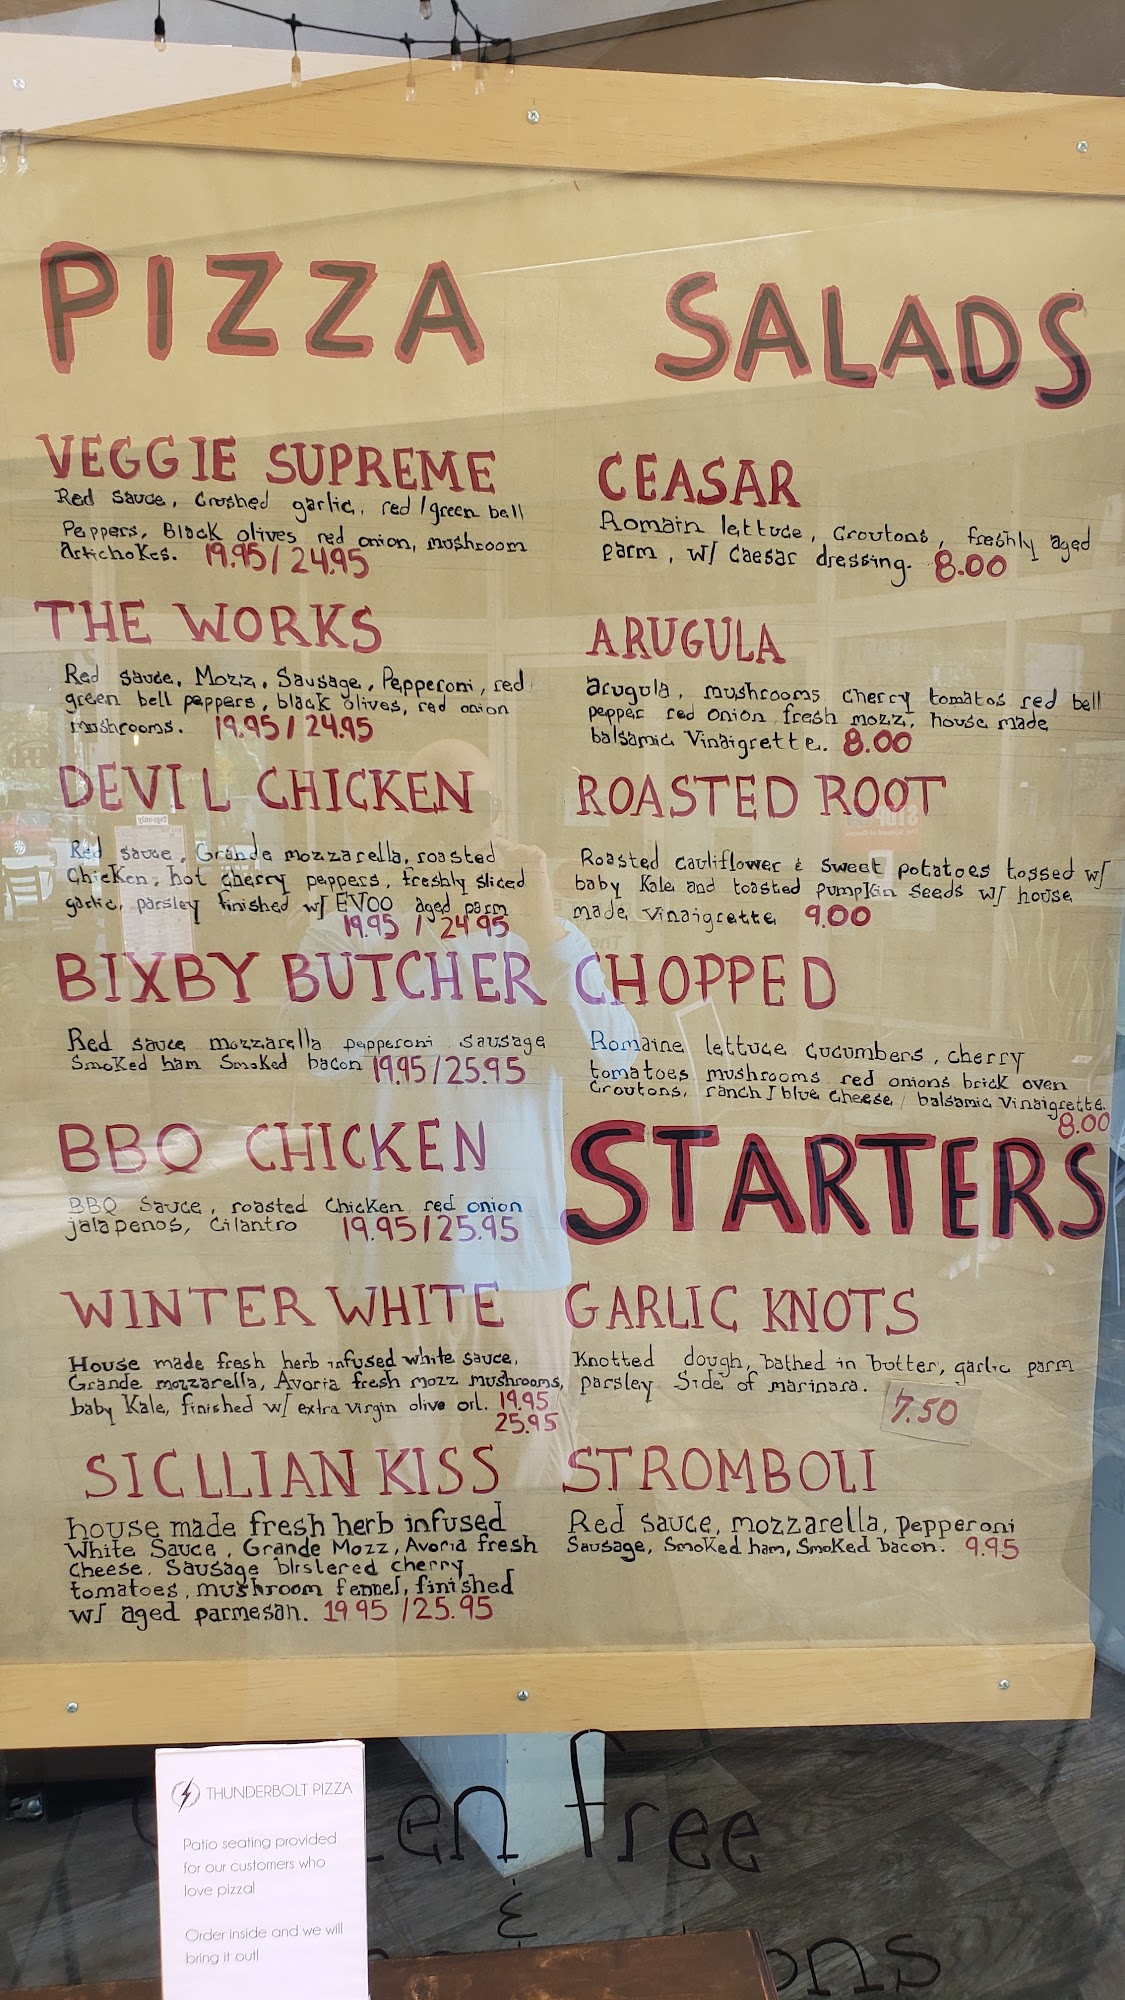 PIZZA
VEGGIE SUPREME
Red sauce, Crushed garlic, red/green bell
Peppers, Black olives red onion, mushroom
Artichokes. 19.95/24.95
THE WORKS
Red sauce, Mozz, Sausage, Pepperoni, red
green bell peppers, black olives, red onion
mushrooms. 19.95/24.95
DEVIL CHICKEN
Red sauce, Grande mozzarella, roasted
Chicken, hot cherry peppers, freshly sliced
garlic, parsley finished w/ EVOO aged parm
19.95 / 24.95
BIXBY BUTCHER
Red sauce mozzarella pepperoni sausage
Smoked ham Smoked bacon 19.95/25.95
BBQ CHICKEN
BBQ Sauce, roasted Chicken red onion
jalapenos, Cilantro 19.95/25.95
WINTER WHITE
House made fresh herb infused white sauce,
Grande mozzarella, Avoria fresh mozz mushrooms,
baby Kale, finished w/ extra virgin olive oil. 19.95
25.95
SICLLIAN KISS
house made fresh herb infused
White Sauce, Grande Mozz, Avoria fresh
Cheese, Sausage blistered cherry
tomatoes, mushroom fennel, finished
w/ aged parmesan. 19.95 / 25.95
SALADS
CEASAR
Romain lettuce, Croutons, freshly aged
parm, w/ Caesar dressing. 8.00
ARUGULA
arugula, mushrooms cherry tomatos red bell
pepper red onion fresh mozz, house made
balsamic Vinaigrette. 8.00
ROASTED ROOT
Roasted Cauliflower & sweet potatoes tossed w/
baby Kale and toasted pumpkin seeds w/ house
made Vinaigrette 9.00
CHOPPED
Romaine lettuce cucumbers, cherry
tomatoes mushrooms red onions brick oven
Croutons, ranch / blue cheese / balsamic vinaigrette.
8.00
STARTERS
GARLIC KNOTS
Knotted dough, bathed in butter, garlic parm
parsley Side of marinara.
7.50
STROMBOLI
Red sauce, mozzarella, pepperoni
Sausage, Smoked ham, Smoked bacon. 9.95
THUNDERBOLT PIZZA
Patio seating provided
for our customers who
love pizza!
Order inside and we will
bring it out!
free
&